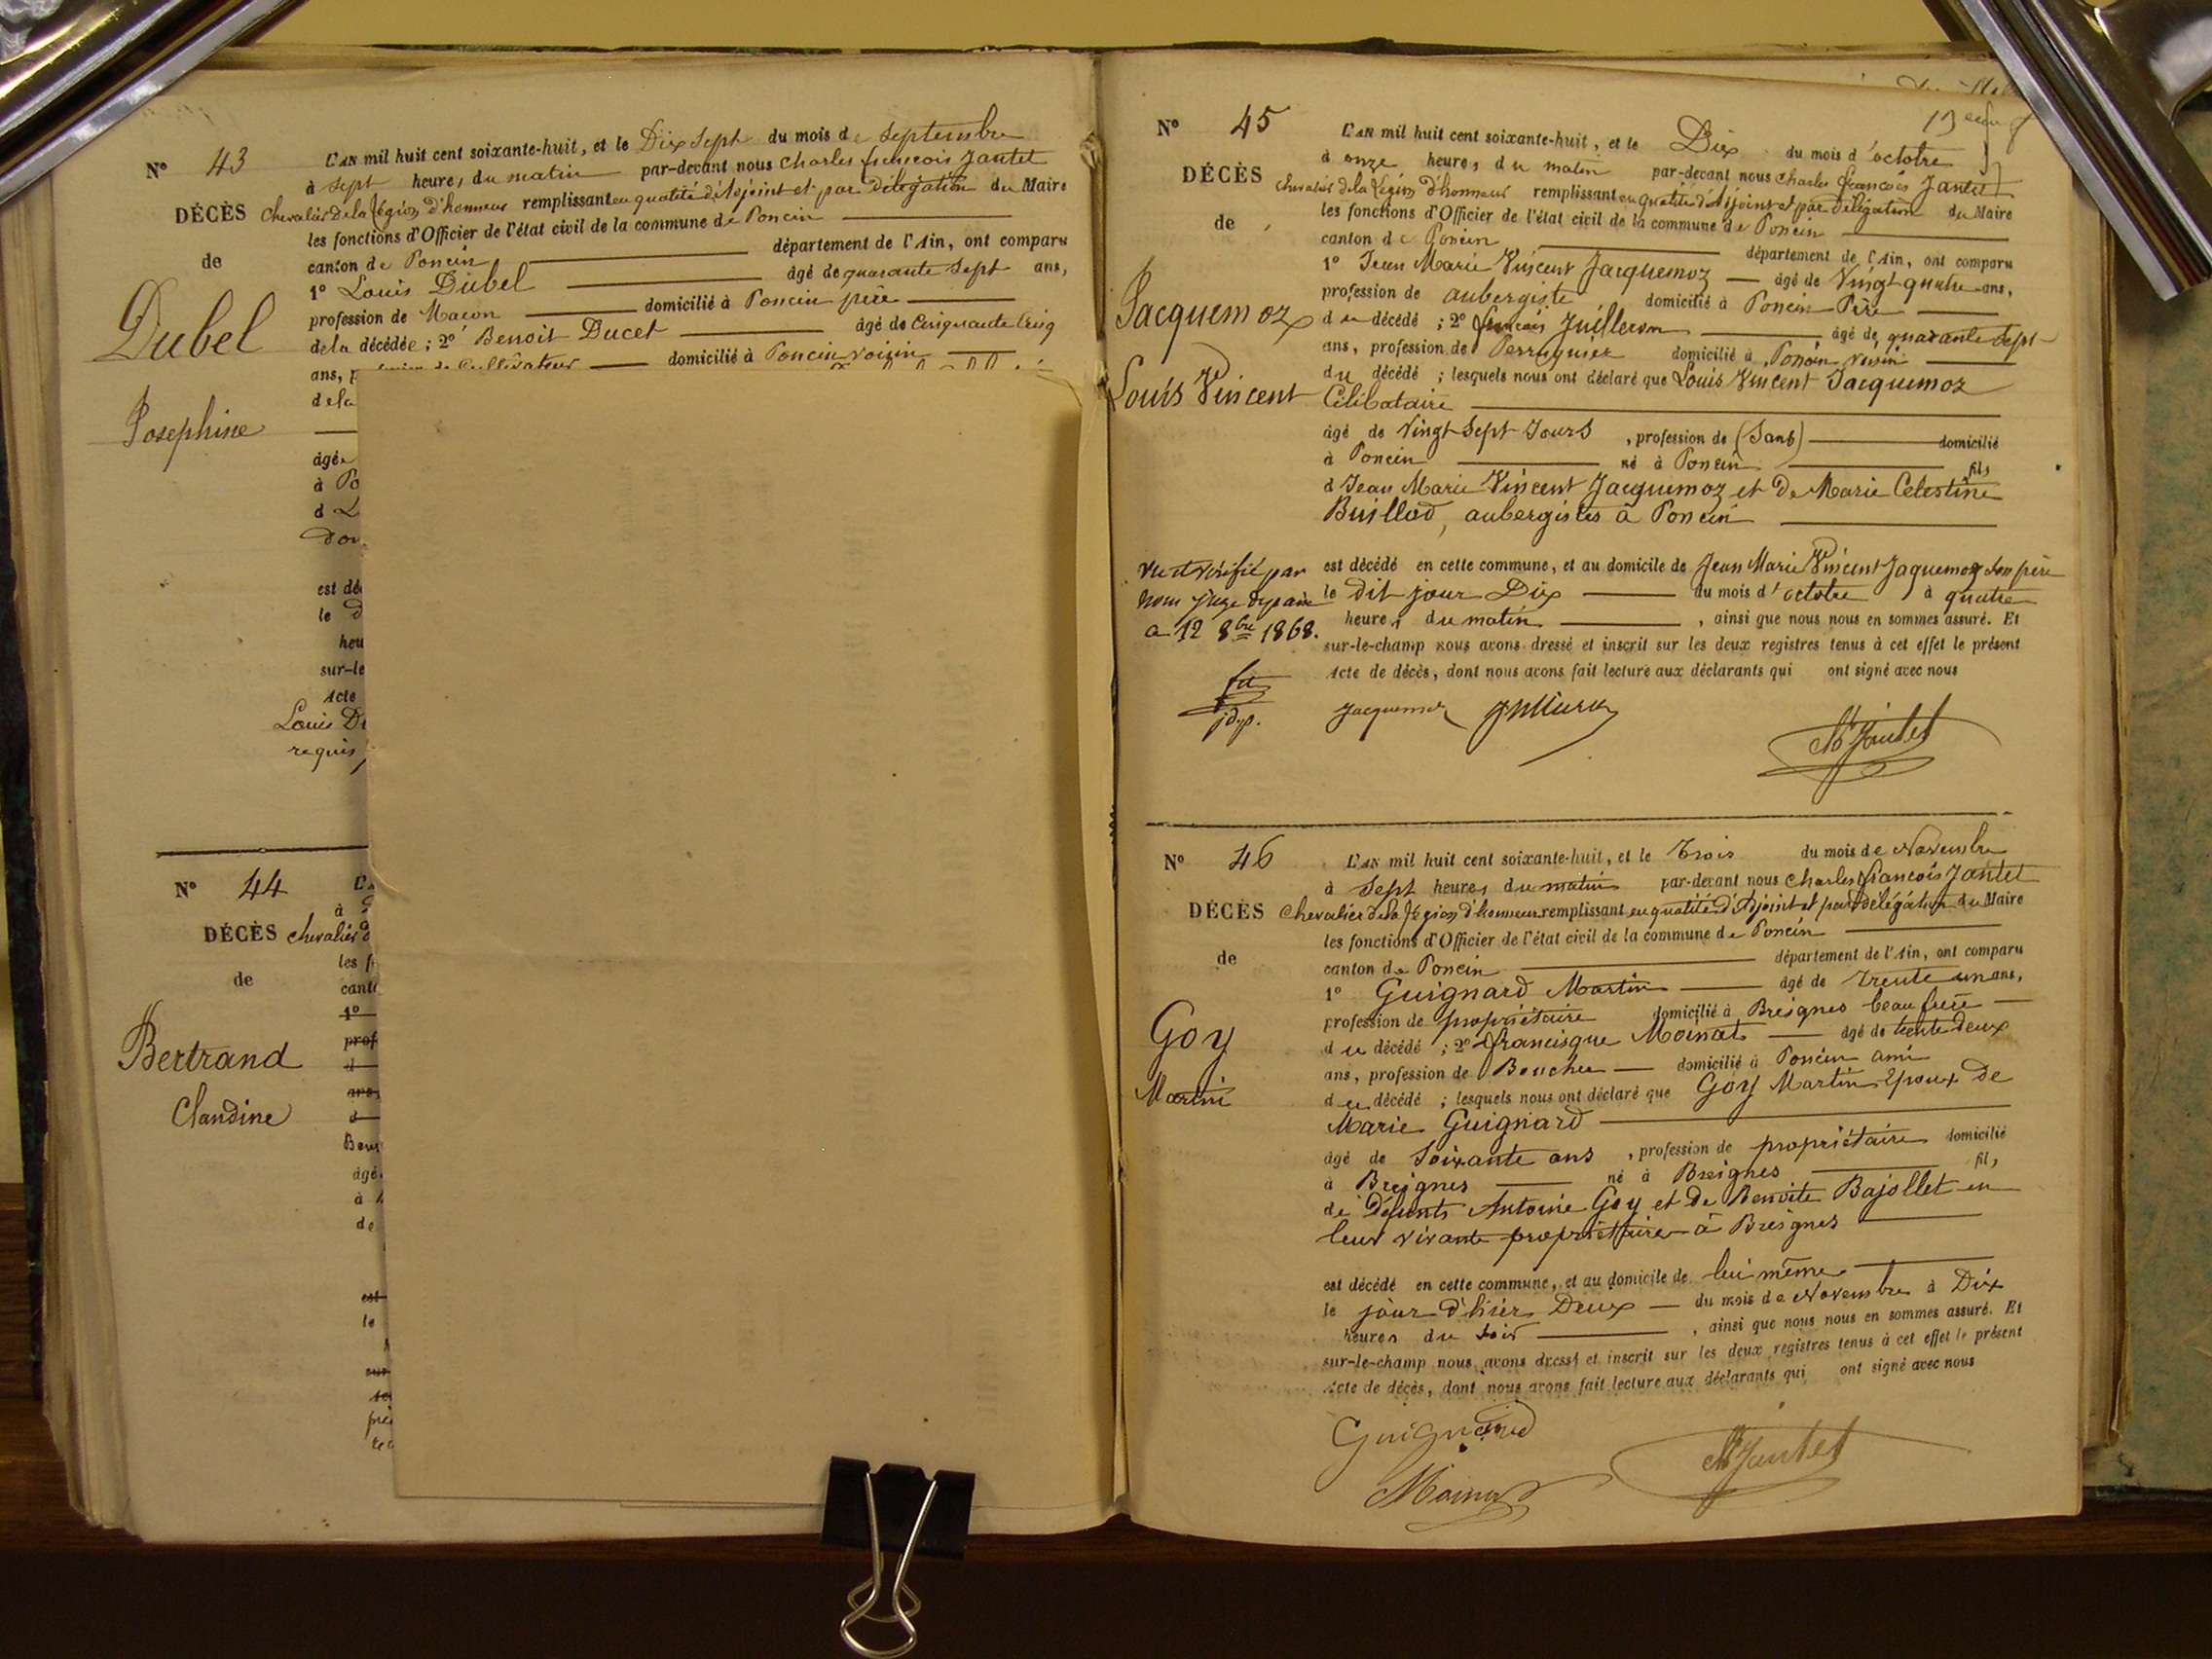 N° 43
DÉCÈS
de
Dubel
Josephine
L'AN mil huit cent soixante-huit, et le Dix Sept du mois de septembre
à sept heures du matin par-devant nous Charles francois Jantet
Chevalier de la Légion d'honneur remplissant en qualité d'Adjoint et par Délégation du Maire
les fonctions d'Officier de l'état civil de la commune de Poncin
canton de Poncin département de l'Ain, ont comparu
1° Louis Dubel âgé de quarante sept ans,
profession de Macon domicilié à Poncin père
de la décédée ; 2° Benoit Ducet âgé de Cinquante Cinq
Cultivateur domicilié à Poncin voisin
ans, p
de la
âgée
à Po
d L
est déc
le d
heu
sur-le
Acte
Louis Du
requis
N° 44
DÉCÈS
de
Bertrand
Claudine
L'A
à
chevalier d
les f
cant
1°
prof
d
ans
d
âgé
à
de
est
le
sur
N° 45
DÉCÈS
de
Jacquemoz
Louis Vincent
L'AN mil huit cent soixante-huit, et le Dix du mois d'octobre
à onze heures du matin par-devant nous Charles francois Jantet
Chevalier de la Légion d'honneur remplissant en qualité d'Adjoint et par Délégation du Maire
les fonctions d'Officier de l'état civil de la commune de Poncin
canton de Poncin département de l'Ain, ont comparu
1° Jean Marie Vincent Jacquemoz âgé de Vingt quatre ans,
profession de aubergiste domicilié à Poncin Père
du décédé ; 2° francois Juilleron âgé de quarante sept
ans, profession de Perruquier domicilié à Poncin voisin
du décédé ; lesquels nous ont déclaré que Louis Vincent Jacquemoz
Célibataire
âgé de Vingt Sept Jours , profession de (Sans) domicilié
à Poncin né à Poncin fils
d Jean Marie Vincent Jacquemoz et De Marie Celestine
Buillod, aubergistes à Poncin
est décédé en cette commune, et au domicile de Jean Marie Vincent Jaquemoz son père
le dit jour Dix du mois d'octobre à quatre
heures du matin , ainsi que nous nous en sommes assuré. Et
sur-le-champ nous avons dressé et inscrit sur les deux registres tenus à cet effet le présent
Acte de décès, dont nous avons fait lecture aux déclarants qui ont signé avec nous
vu et vérifié par
nous juge de paix
a 12 8bre 1868.
jdp.
Jacquemoz Juilleron
Ch Jantet
N° 46
DÉCÈS
de
Goy
Martin
L'AN mil huit cent soixante-huit, et le Trois du mois de Novembre
à Sept heures du matin par-devant nous Charles francois Jantet
Chevalier de la Légion d'honneur remplissant en qualité d'Adjoint et par Délégation du Maire
les fonctions d'Officier de l'état civil de la commune de Poncin
canton de Poncin département de l'Ain, ont comparu
1° Guignard Martin âgé de Trente un ans,
profession de propriétaire domicilié à Breignes beau frère
du décédé ; 2° francisque Moinat âgé de trente deux
ans, profession de Boucher domicilié à Poncin ami
du décédé ; lesquels nous ont déclaré que Goy Martin Epoux de
Marie Guignard
âgé de Soixante ans , profession de propriétaire domicilié
à Breignes né à Breignes fils
de Défunts Antoine Goy et de Benoite Bajollet en
leur vivante propriétaires à Breignes
est décédé en cette commune, et au domicile de lui même
le jour d'hier Deux du mois de Novembre à Dix
heures du Soir , ainsi que nous nous en sommes assuré. Et
sur-le-champ nous avons dressé et inscrit sur les deux registres tenus à cet effet le présent
Acte de décès, dont nous avons fait lecture aux déclarants qui ont signé avec nous
Guignard
Ch Jantet
Moinat